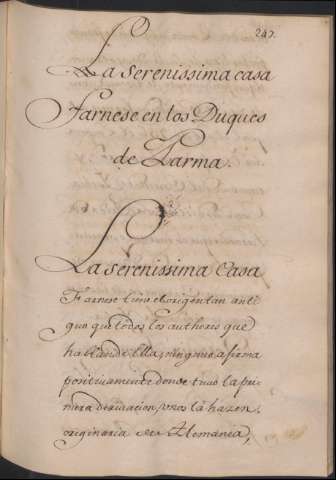 247.
La serenissima casa
Farnese en los Duques
de Parma.
La serenissima Casa
Farnese tiene el origen tan anti
guo que todos los authores que
hablan de ella, ninguno afirma
positivamente donde tuvo la pri-
mera derivacion, unos la hazen,
originaria de Alemania,